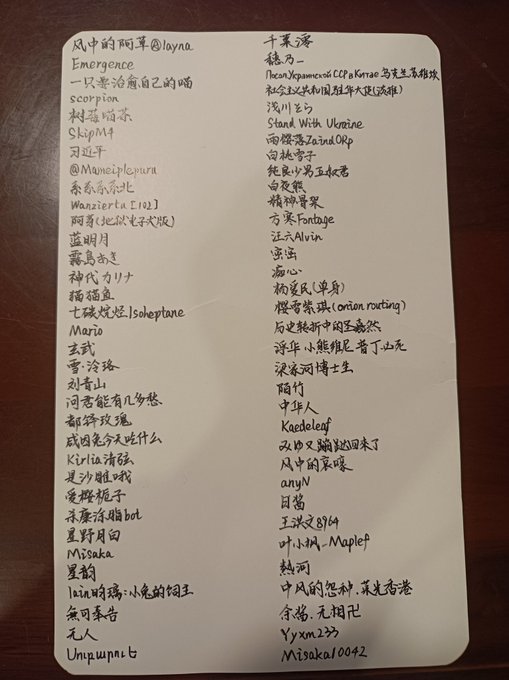 风中的阿草@layna
Emergence
一只要治愈自己的喵
scorpion
树莓喵茶
SkipM4
习近平
@Mameiplepuru
系系系系北
Wanziertu [102]
阿芽(地狱电子犬版)
蓝明月
霧島あき
神代カリナ
猫猫鱼
七碳烷烃/Isoheptane
Mario
玄武
雪·泠珞
刘青山
问君能有几多愁
都铎玫瑰
成因兔今天吃什么
Kirlia清弦
是沙雕哦
爱樱栀子
杀廉涂脂bot
星野月白
Misaka
星韵
lain的璃:小兔的饲主
無可奉告
无人
千菜澪
穂乃一
Посол Украинской ССР в Китае 乌克兰苏维埃
社会主义共和国驻华大使(试推)
浅川そら
Stand With Ukraine
雨樱落ZaindORp
白桃雪子
纯良少男五叔君
白夜熊
精神骨架
方寒Fontage
汪六Alvin
痴心
杨爱民(单身)
樱雪紫琪(onion routing)
历史转折中的王嘉然
浮华 小熊维尼 普丁必死
梁家河博士生
陌竹
中华人
Kaedeleaf
みゆ又蹦跶回来了
风中的哀嚎
anyN
日酱
王洪文8964
叶小枫_Maplef
熱河
中风的怨种,菜光香港
余酱·无相卍
Yyxm233
Misaka10042